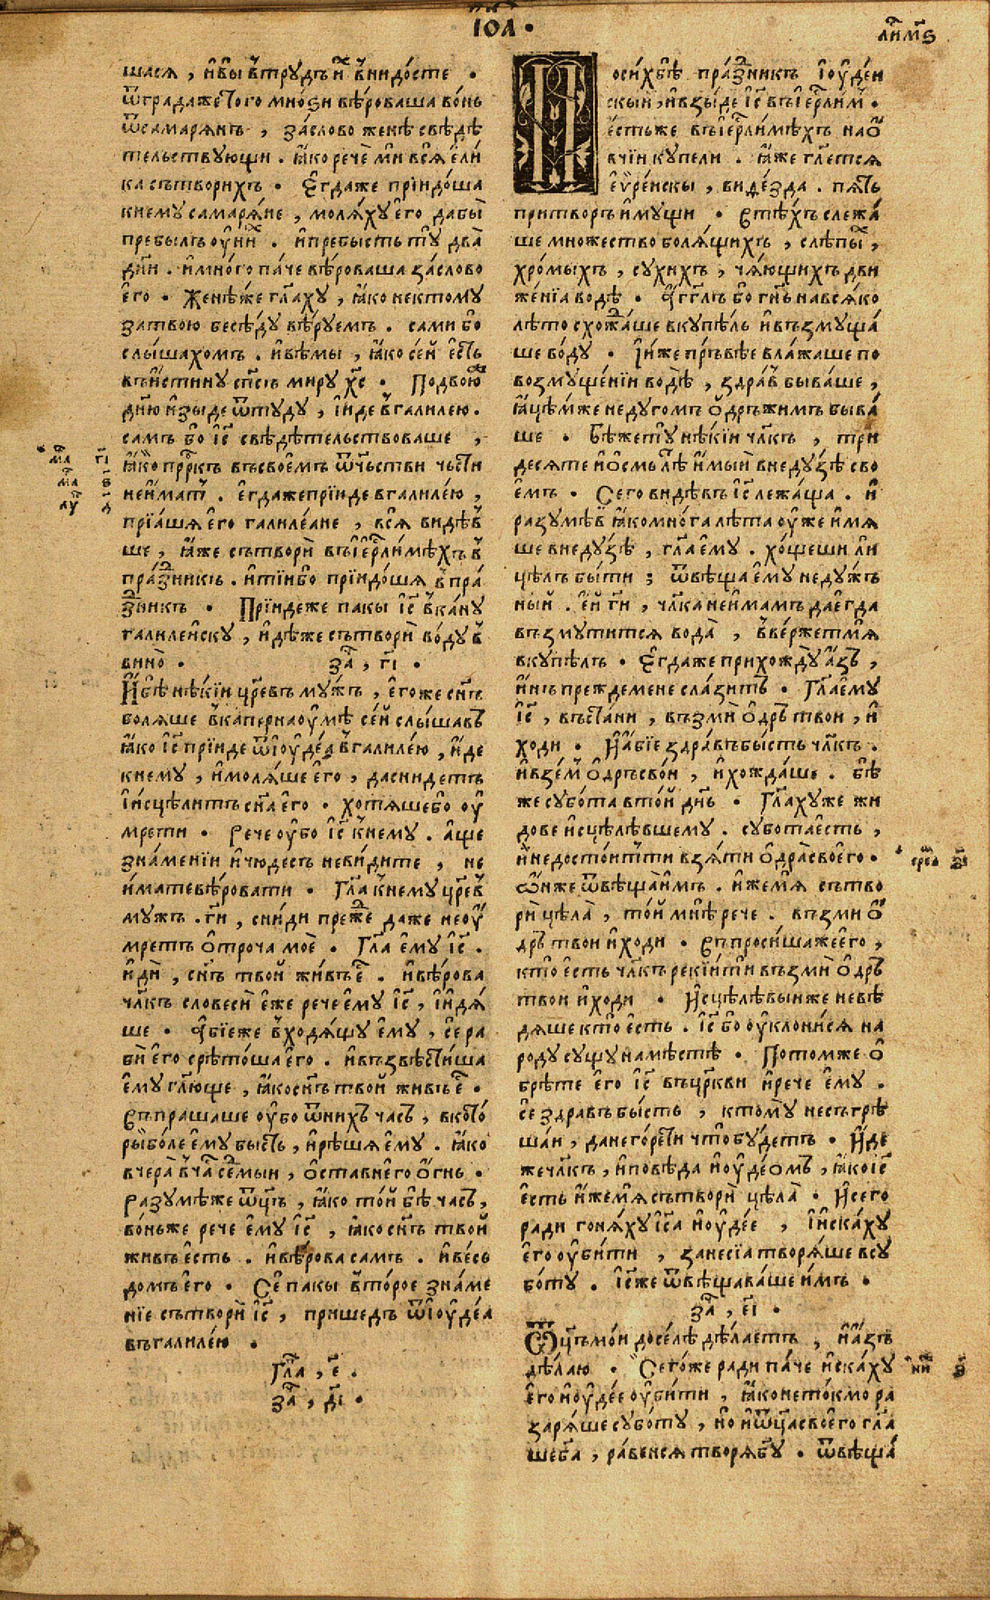 іѡа҃ .
шася , и҆вы̀ втрꙋдъ и҆҃х внидо́сте .
ѿградаже того мноѕи вѣ́роваша во́нь
ѿсамарянъ , за́слово жене̏ свѣдѣ
тельствꙋющи . ꙗ҆́ко рече̏ ми всѧ є҆ли
ка сътворихъ . Е҆гдаже прїидо́ша
кнемꙋ самарѧ́не , молѧ́хꙋ е҆го̀ дабы̀
пребылъ ᲂу҆ни́х . и҆пребысть тꙋ̀ два̀
дн҃и . и҆мно́го па́че вѣ́роваша за́слово
е҆го̀ . Женѣ́же гл҃ахꙋ , ꙗ҆́ко нектомꙋ
затвою бесѣ́дꙋ вѣ́рꙋемъ . сами бо
слы́шахомъ . и҆вѣ́мы , ꙗ҆́ко се́й е҆сть
въи҆́стинꙋ сп҃съ мирꙋ х҃с . Подвою
дн҃ю и҆зыде ѿтꙋдꙋ , и҆и́де вгалилею .
самъ бо і҆с҃ свѣдѣтельствоваше ,
ꙗ҆́ко прⷪ҇ркъ въсвое́мъ ѿч҃ьстви чьсти
неи҆мат . е҆гдажепрїи́де вгалиле́ю ,
прїа́шѧ е҆го̀ галиле́ане , всѧ̀ видѣ́в
ше , ꙗ҆́же сътвори̏ въїе҆рⷭ҇ли́мѣхъ в
пра́здникъ . и҆тїибо прїидо́шѧ впра́
здникъ . Прїидеже пакы і҆с҃ вка́нꙋ
галиле́йскꙋ , и҆дѣ́же сътвори̏ во́дꙋ в
вино̀ . за҃ , г҃і .
И҆бѣ̀ нѣ́кїи цр҃евъ мꙋ́жъ , е҆гоже сн҃ъ
болѧше вкаперна́ᲂумѣ се́й слы́шавъ
ꙗ҆́ко і҆с҃ прїи́де ѿїᲂуде́ѧ вгалиле́ю , и҆́де
кнемꙋ , и҆молѧ́ше е҆го̀ , даснидетъ
і҆и҆сцѣли́тъ сн҃а е҆го . хотѧ́шебо ᲂу҆
мрети . Рече ᲂу҆бо і҆с҃ кнемꙋ . а҆́ще
зна́менїи и҆чюдесъ неви́дите , не
и҆матевѣ́ровати . Гл҃а кнемꙋ цр҃евъ
мꙋжъ . гн҃и , сни́ди пре́же даже неᲂу҆́
мретъ ѻ҆троча моѐ . Гл҃а е҆мꙋ і҆с҃ .
и҆ди̏ , сн҃ъ твой жи́въ е҆́ . и҆вѣ́рова
чл҃къ словеси̏ е҆же рече е҆мꙋ і҆с҃ , і҆и҆дѧ́
ше . А҆бїеже входѧ́щꙋ е҆мꙋ , се́ ра
би̏ е҆го срѣто́ша е҆го . и҆възвѣсти́ша
е҆мꙋ гл҃юще , ꙗ҆косн҃ъ твой живъ е҆́ .
Въпрашаше ᲂу҆бо ѿнихъ часъ , вкото́
рыи бо́ле е҆мꙋ бы́сть , и҆рѣ́шѧ е҆мꙋ . ꙗ҆ко
вчера̏ вча́ се́мыи , ѻ҆ставиего ѻ҆́гнь .
Разꙋмѣ́же ѿц҃ъ , ꙗ҆ко то́й бѣ̀ часъ ,
во́ньже рече е҆мꙋ і҆с҃ , ꙗ҆косн҃ъ тво́й
живъ е҆сть . и҆вѣ́рова самъ . и҆ве́сь
домъ е҆го . Се̑ пакы второе зна́ме
нїе сътвори̏ і҆с҃ , пришедъ ѿїᲂуде́а
въгалиле́ю .
гл҃а , е҃ .
за҃ , д҃і .
Посихъбѣ̀ пра́здникъ і҆ᲂуде́и
скыи , и҆взы́де і҆с҃ въїе҆рⷭ҇лим .
е҆́стьже въїе҆рⷭ҇ли́мѣхъ наѻ҆́
вчїи кꙋпели . ꙗ҆́же гл҃етсѧ
е҆ѵре́искы , виде́зда . пѧ́ть
притворъ и҆мꙋщи . Втѣ́хъ слежа́
ше множество болѧ́щихъ , слѣпы́х ,
хро́мыхъ , сꙋхихъ , чѧ́ющихъ дви
же́нїа водѣ . А҆гг҃лъ бо гн҃ь навсѧ́ко
лѣ́то схожа́ше вкꙋпѣ́ль и҆възмꙋща́
ше во́дꙋ . И҆́же пръ́вѣе влажаше по
возмꙋще́нїи водѣ̀ , здра́в быва́ше ,
ꙗ҆цѣ́мже недꙋгомъ ѻ҆дръжимъ быва́
ше . Бѣ́жетꙋ нѣ́кїи чл҃къ , три
десѧте и҆ѻ҆смь лѣ́ и҆мы́й внедꙋзѣ̀ сво
е҆мъ . Сего видѣвъ і҆с҃ лежа́ща . и҆
разꙋмѣ́в ꙗ҆комно́га лѣта ᲂу҆́же и҆мѧ
ше внедꙋзѣ , гл҃а е҆мꙋ . хо́щеши ли
цѣ́лъ бы́ти ; ѿвѣща е҆мꙋ недꙋ́жъ
ный . е҆́й гн҃и , чл҃ка неи҆мамъ дае҆гда
възмꙋтится вода̀ , вве́ржетмѧ
вкꙋпѣ́лъ . Е҆гдаже прихождꙋ а҆́зъ ,
и҆́нъ преждемене сла́зитъ . Гл҃ае҆мꙋ
і҆с҃ , въста́ни , възми̏ ѻ҆дръ твои , и҆
ходи . И҆а҆́бїе здра́въбысть чл҃къ .
и҆взе́м ѻ҆дръсво́и , и҆хожда́ше . бѣ
же сꙋбо́та вто́й дн҃ь . Гл҃ахꙋже жи
дове и҆сцѣлѣ́вшемꙋ . сꙋботае҆сть ,
и҆недосто́итти взѧ́ти ѻ҆драсвоего .
ѡ҆́нже ѿвѣща̀и҆мъ . и҆жемѧ сътво
ри̏ цѣла̀ , то́й мнѣ̀ рече . възми ѻ҆́
дръ твои и҆ходи . Въпроси́шаже́е҆го ,
кто е҆сть чл҃къ реки́ити възми̏ ѻ҆дръ
твои и҆ходи . И҆сцѣлѣ́выиже невѣ́
дѧше кто е҆сть . і҆с҃ бо ᲂу҆клони́сѧ на
родꙋ сꙋщꙋ намѣ́стѣ . Пото́мже ѻ҆
брѣте е҆го і҆с҃ въцр҃кви и҆рече е҆мꙋ .
се́ здравъ бы́сть , ктомꙋ несъгрѣ
ша́и , данегоре́ти что бꙋдетъ . И҆́де
жечл҃къ , и҆повѣ́да и҆ᲂуде́омъ , ꙗ҆коіс҃
е҆сть и҆́жемѧ сътвори̏ цѣла̀ . И҆сего
ради гонѧ́хꙋ і҆с҃а и҆ᲂуде́е , і҆и҆ска́хꙋ
е҆го ᲂу҆би́ти , занесїа творѧ́ше всꙋ
бо́тꙋ . І҆с҃же ѿвѣщава́ше и҆мъ .
за҃ , е҃і .
Ѿц҃ъмо́и досе́лѣ дѣ́лаетъ , и҆а҆́зъ
дѣ́лаю . Сего́же ради па́че и҆ска́хꙋ
е҆го и҆ᲂуде́е ᲂу҆би́ти , ꙗ҆конето́кмо ра
зарѧ́ше сꙋбо́тꙋ , но и҆ѿц҃асвоего гл҃а
ше бг҃а , ра́венсѧ творѧ́ бг҃ꙋ . ѿвѣща́